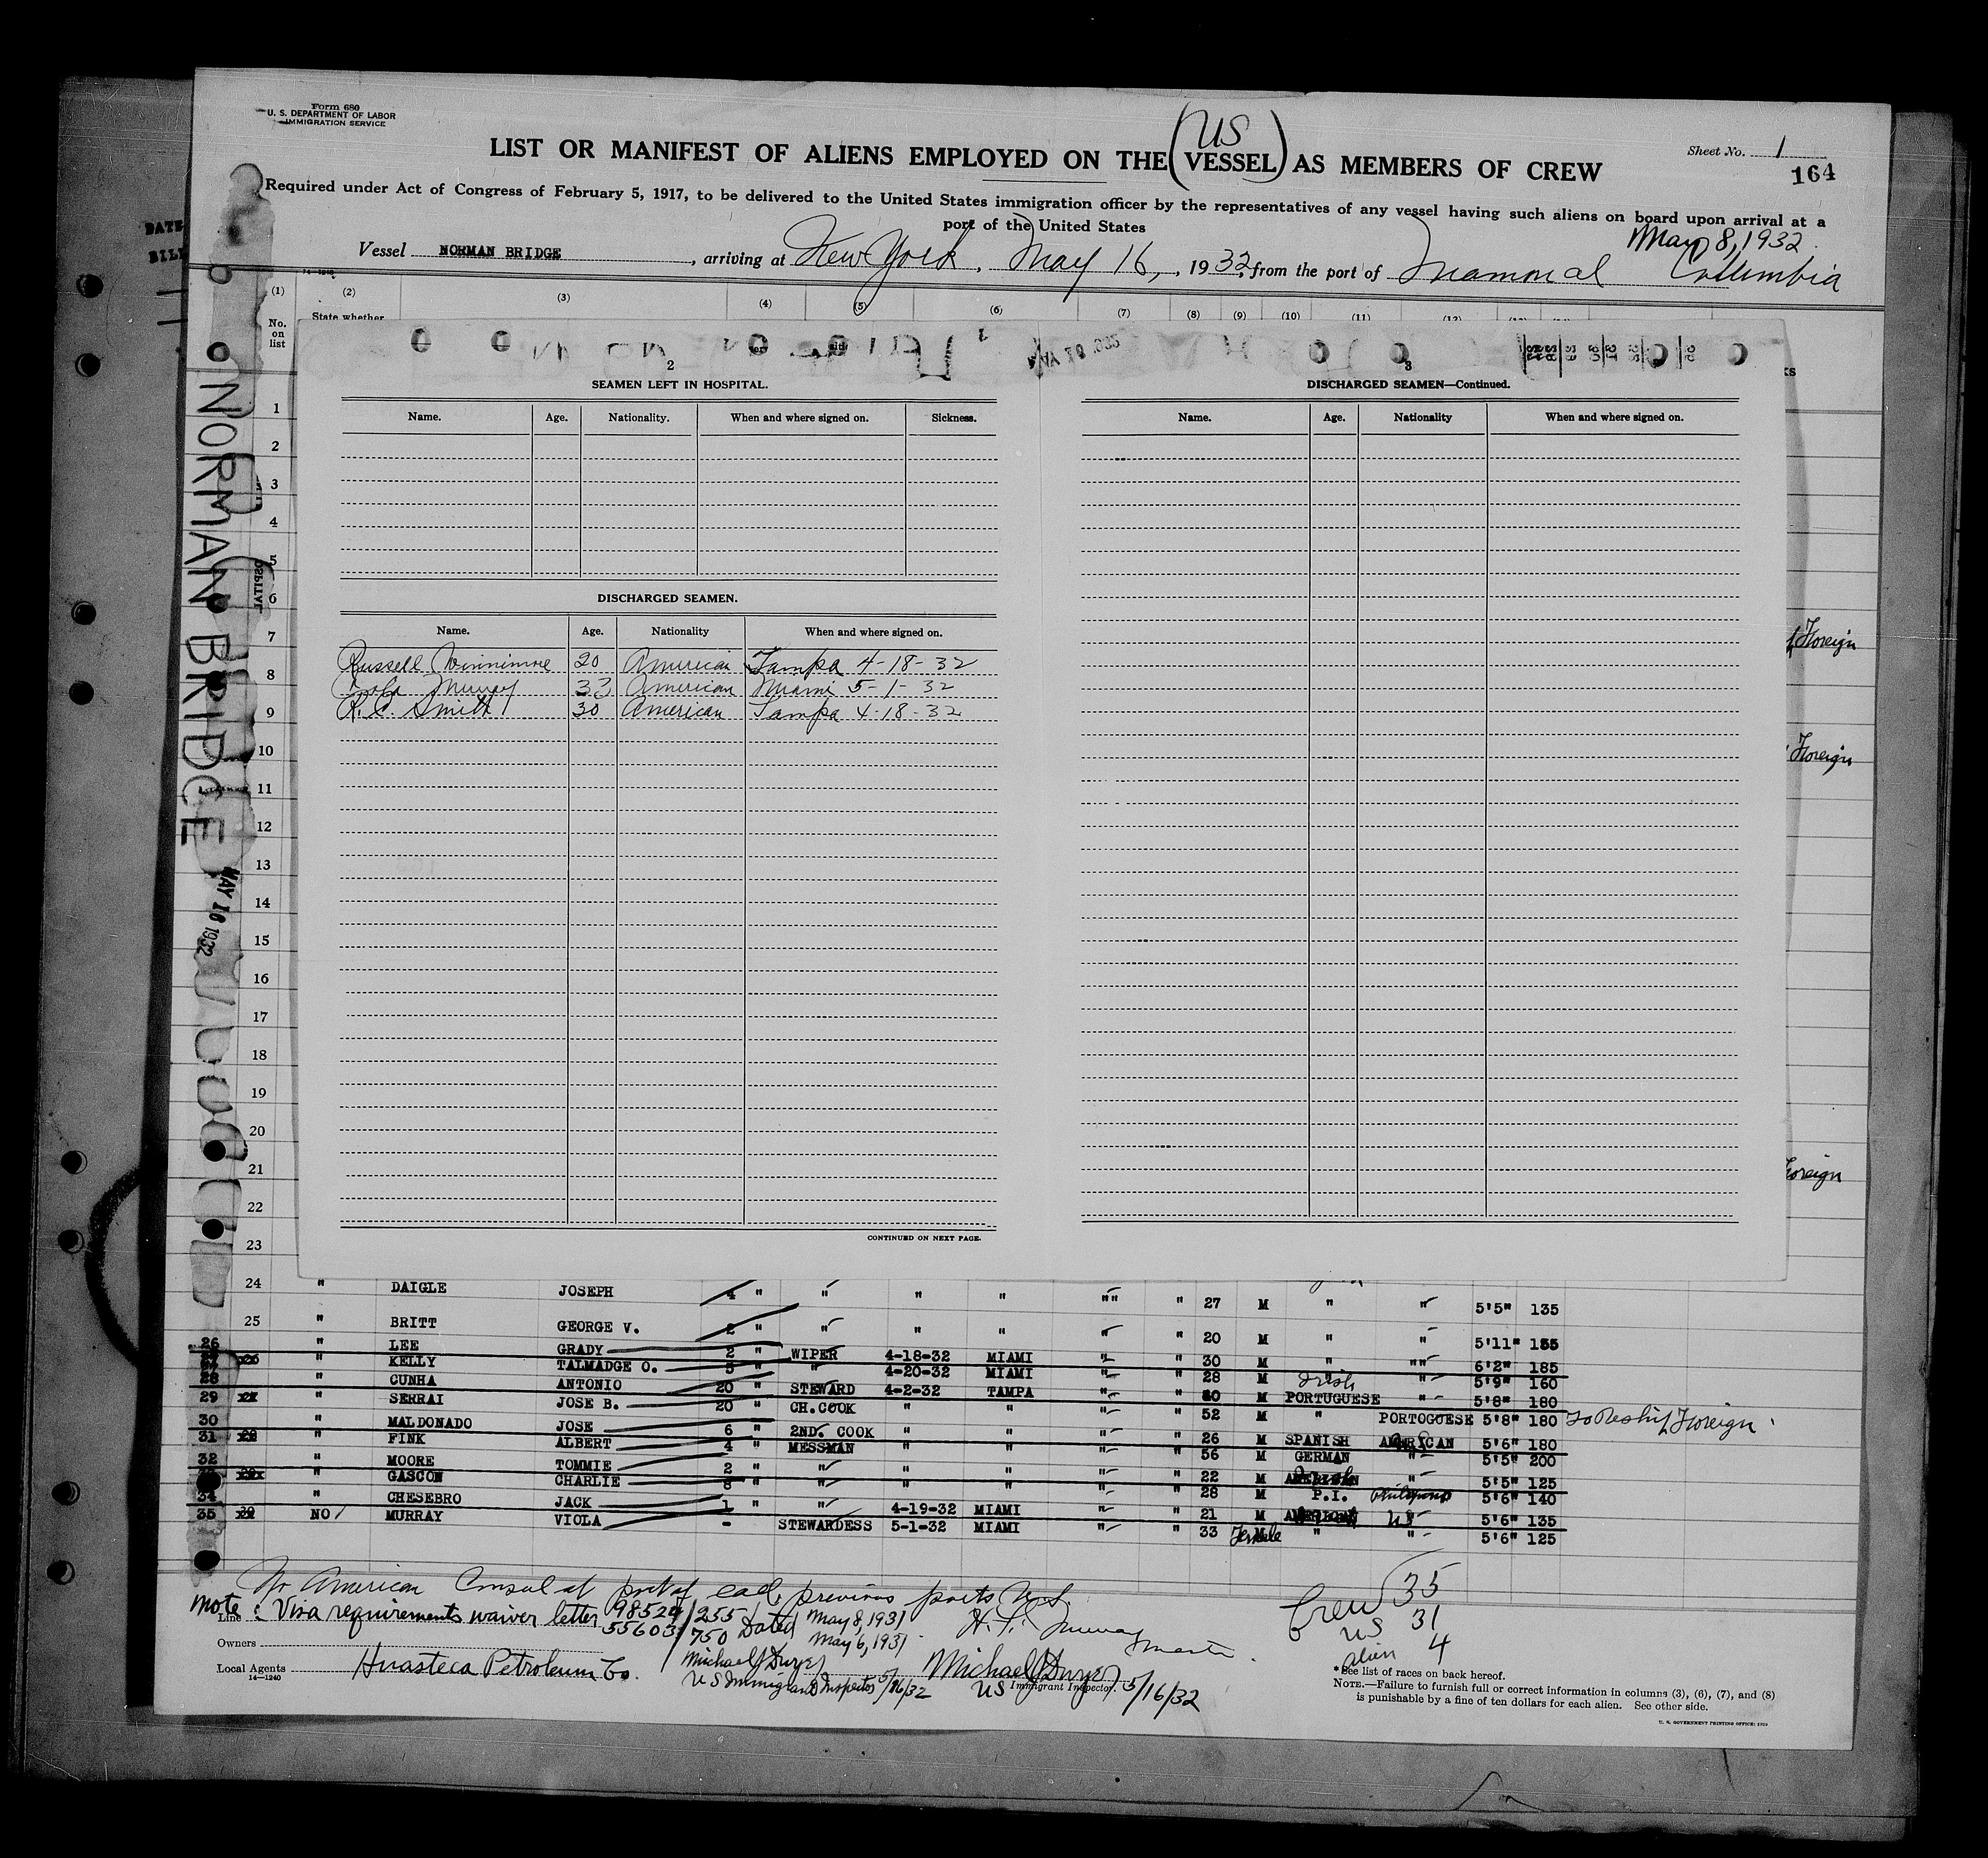 Form 680
U. S. DEPARTMENT OF LABOR
IMMIGRATION SERVICE
Sheet No. 1
164
LIST OR MANIFEST OF ALIENS EMPLOYED ON THE (US VESSEL) AS MEMBERS OF CREW
Required under Act of Congress of February 5, 1917, to be delivered to the United States immigration officer by the representatives of any vessel having such aliens on board upon arrival at a
port of the United States
May 8, 1932
Vessel NORMAN BRIDGE, arriving at New York, May 16, 1932, from the port of Mamonal Collumbia
(1) (2) (3) (4) (5) (6) (7) (8) (9) (10) (11) (12)
No. on list
State whether
NORMAN BRIDGE
MAY 16 1932
2
SEAMEN LEFT IN HOSPITAL.
Name. Age. Nationality. When and where signed on. Sickness.
DISCHARGED SEAMEN.
Name. Age. Nationality When and where signed on.
Russell 20 American Tampa 4-18-32
Murray 33 American Miami 5-1-32
R. C. Smith 30 American Tampa 4-18-32
CONTINUED ON NEXT PAGE.
3
DISCHARGED SEAMEN—Continued.
Name. Age. Nationality When and where signed on.
Foreign
Foreign
Foreign
1
2
3
4
5
6
7
8
9
10
11
12
13
14
15
16
17
18
19
20
21
22
23
24 " DAIGLE JOSEPH 4 " " " " "" " 27 M " " 5'5" 135
25 " BRITT GEORGE V. 2 " " " " " " 20 M " " 5'11" 155
26 " LEE GRADY 2 " WIPER 4-18-32 MIAMI " " 30 M " "" 6'2" 185
27 " KELLY TALMADGE O. 3 " " 4-20-32 MIAMI " " 28 M Irish " 5'9" 160
28 " CUNHA ANTONIO 20 " STEWARD 4-2-32 TAMPA " " 40 M PORTUGUESE " 5'8" 180
29 " SERRAI JOSE B. 20 " CH.COOK " " " " 52 M " PORTOGUESE 5'8" 180 To Reship Foreign
30 " MALDONADO JOSE 6 " 2ND. COOK " " " " 26 M SPANISH AMERICAN 5'6" 180
31 " FINK ALBERT 4 " MESSMAN " " " " 56 M GERMAN " 5'5" 200
32 " MOORE TOMMIE 2 " " " " " " 22 M AMERICAN " 5'5" 125
" GASCON CHARLIE 8 " " " " " " 28 M P.I. 5'6" 140
34 " CHESEBRO JACK 1 " " 4-19-32 MIAMI " " 21 M AMERICAN US 5'6" 135
35 NO MURRAY VIOLA - STEWARDESS 5-1-32 MIAMI " " 33 Female " " 5'6" 125
No American Consul at port of call, previous ports U.S.
Note: Visa requirements waiver letter 98524/255 Dated May 8, 1931
55603/750 May 6, 1931
H. Murray Master.
Crew 35
US 31
alien 4
Line
Owners
Local Agents Huasteca Petroleum Co.
14—1240
Michael J Dwyer
US Immigrant Inspector 5/16/32
Michael J Dwyer
US Immigrant Inspector. 5/16/32
* See list of races on back hereof.
NOTE.—Failure to furnish full or correct information in columns (3), (6), (7), and (8)
is punishable by a fine of ten dollars for each alien. See other side.
U. S. GOVERNMENT PRINTING OFFICE: 1929